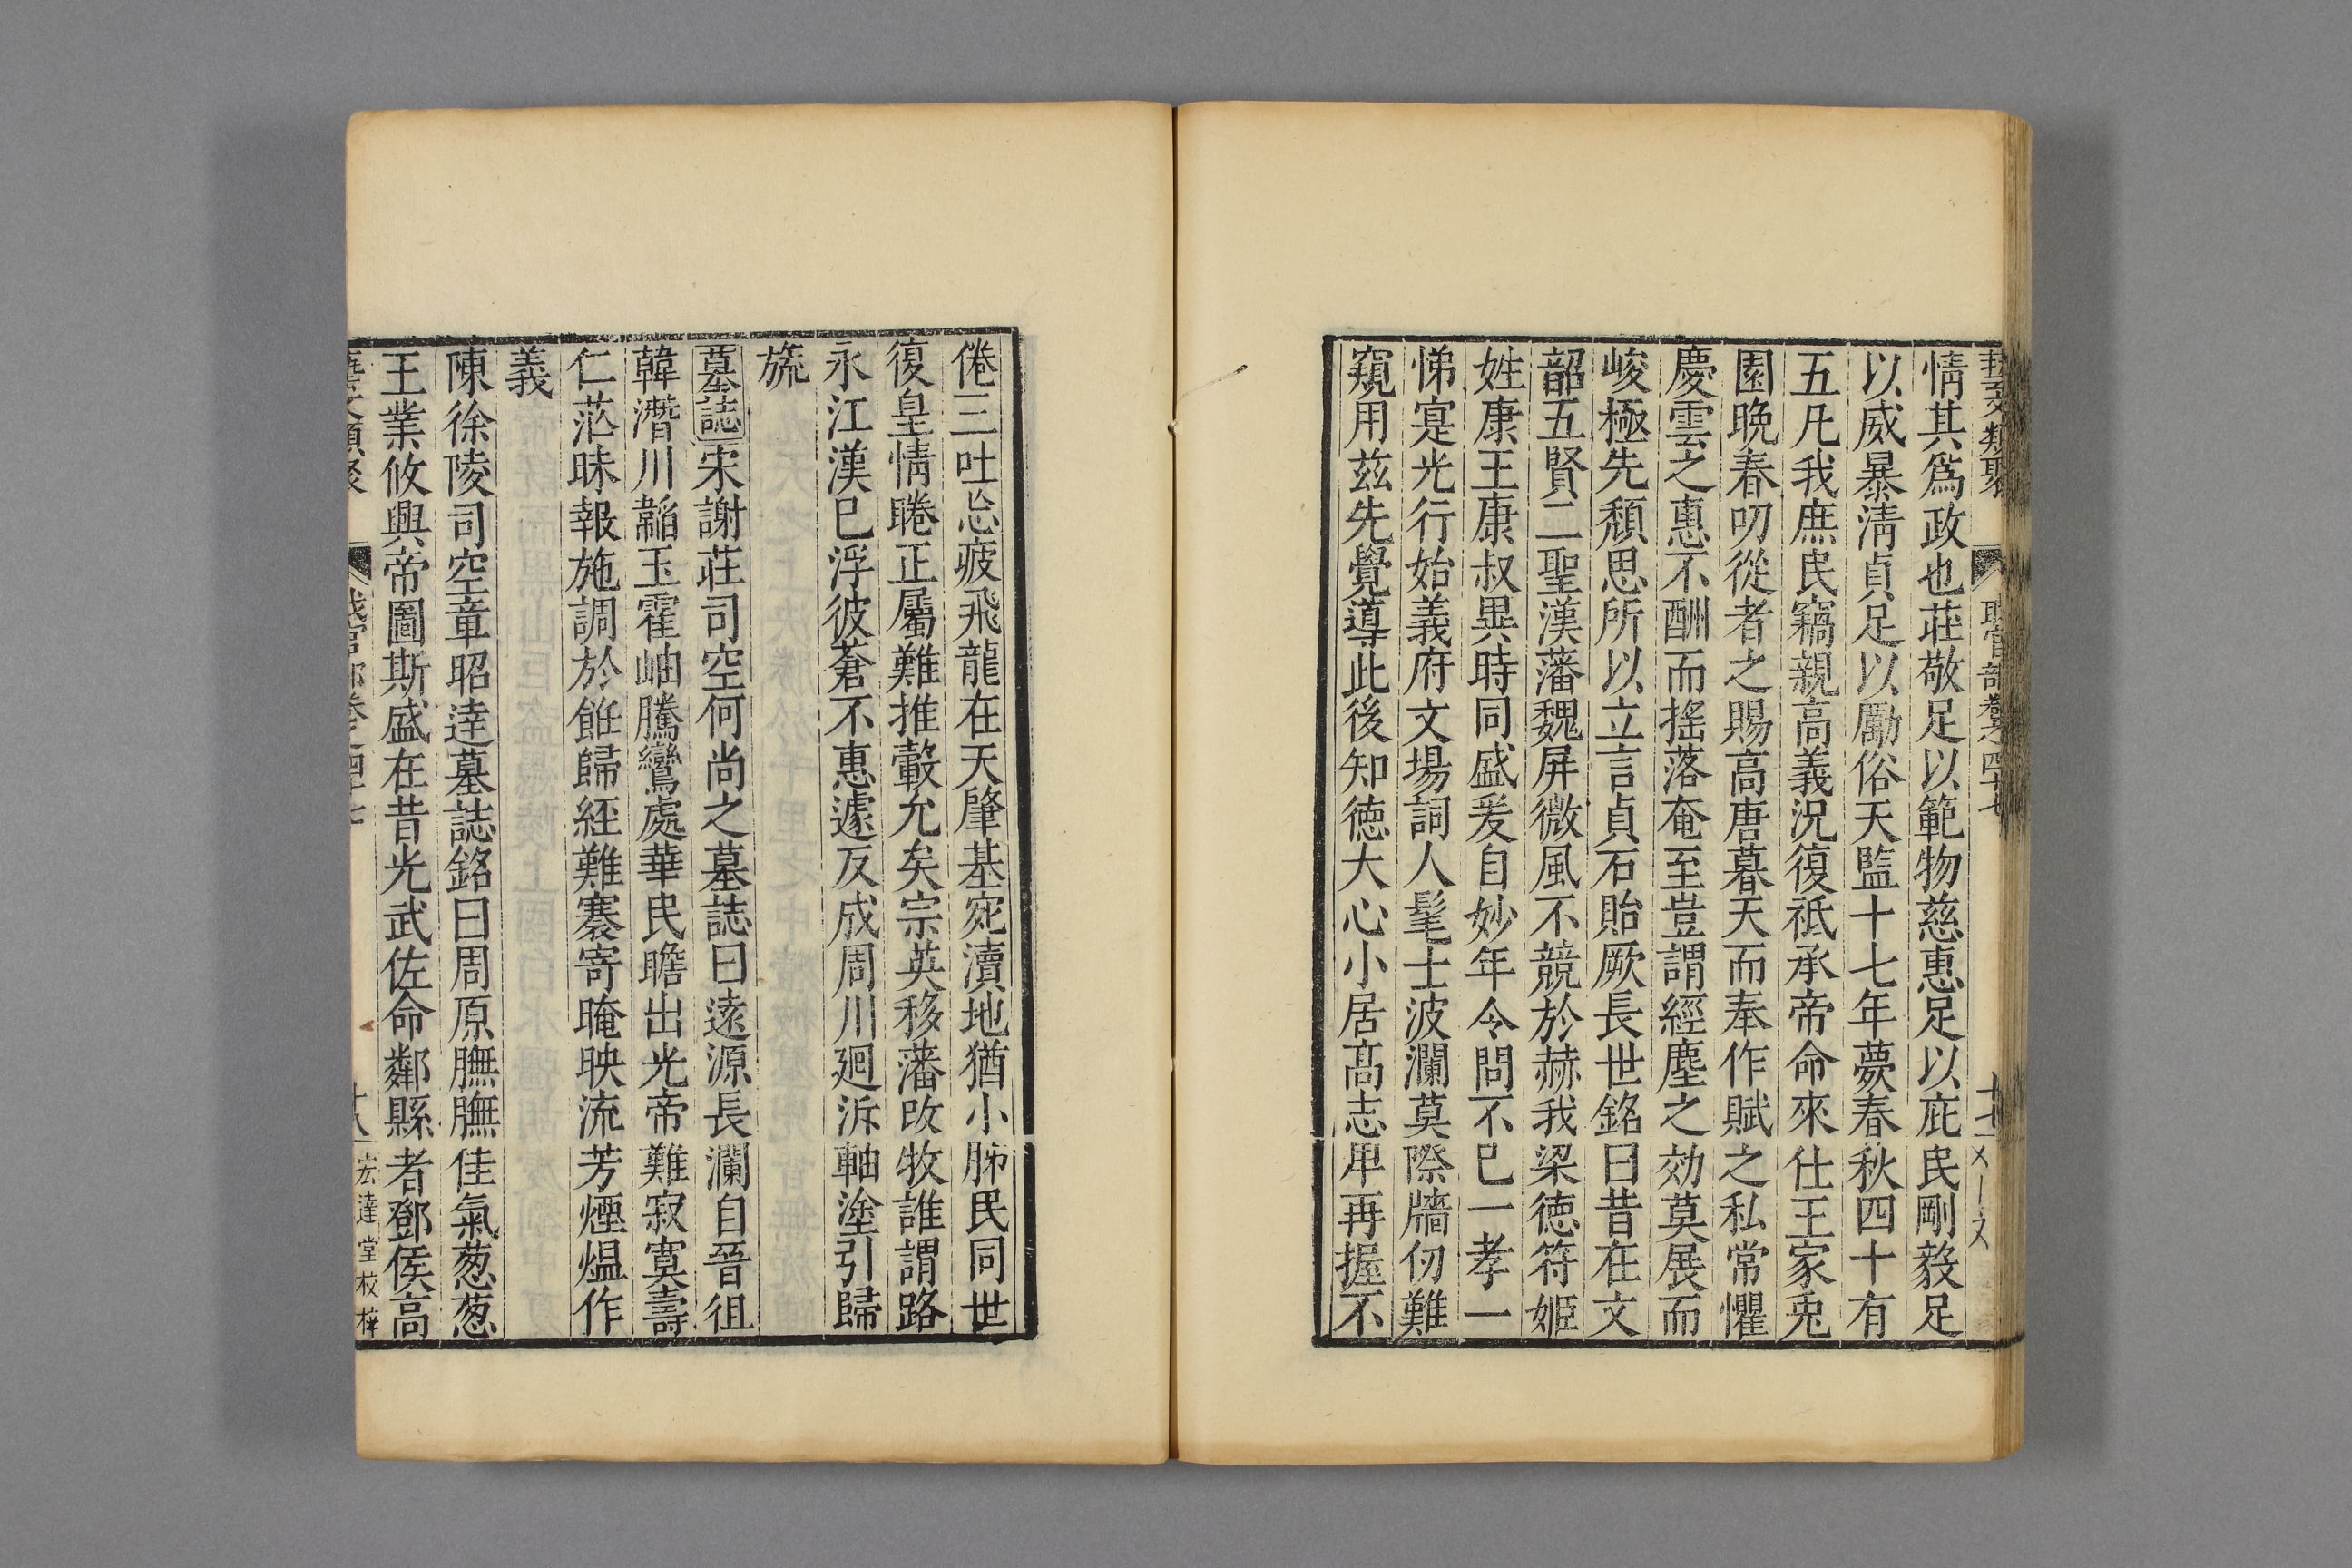 藝文類聚 職官部卷之四十七 十七
情其爲政也莊敬足以範物慈惠足以庇民剛毅足
以威暴淸貞足以勵俗天監十七年薨春秋四十有
五凡我庶民竊親高義況復祗承帝命來仕王家兎
園晩春叨從者之賜高唐暮天而奉作賦之私常懼
慶雲之惠不酬而搖落奄至豈謂經塵之効莫展而
峻極先頹思所以立言貞石貽厥長世銘曰昔在文
韶五賢二聖漢藩魏屏微風不競於赫我梁德符姬
姓康王康叔異時同盛爰自妙年令問不已一孝一
悌寔光行始義府文場詞人髦士波瀾莫際牆仞難
窺用兹先覺導此後知德大心小居髙志卑再握不
倦三吐忘疲飛龍在天肇基宛瀆地猶小肺民同世
復皇情睠正屬難推轂允矣宗英移藩改牧誰謂路
永江漢已浮彼蒼不惠遽反成周川廻泝軸塗引歸
旒
墓誌宋謝莊司空何尚之墓誌曰遠源長瀾自晉徂
韓潛川韞玉霍岫騰鸞處華民瞻出光帝難寂寞壽
仁茫昧報施調於餁歸經難褰寄晻映流芳煙煴作
義
陳徐陵司空章昭達墓誌銘曰周原膴膴佳氣葱葱
王業攸興帝圖斯盛在昔光武佐命鄰縣者鄧侯高
藝文類聚 職官部卷之四十七 十八 宏達堂校梓